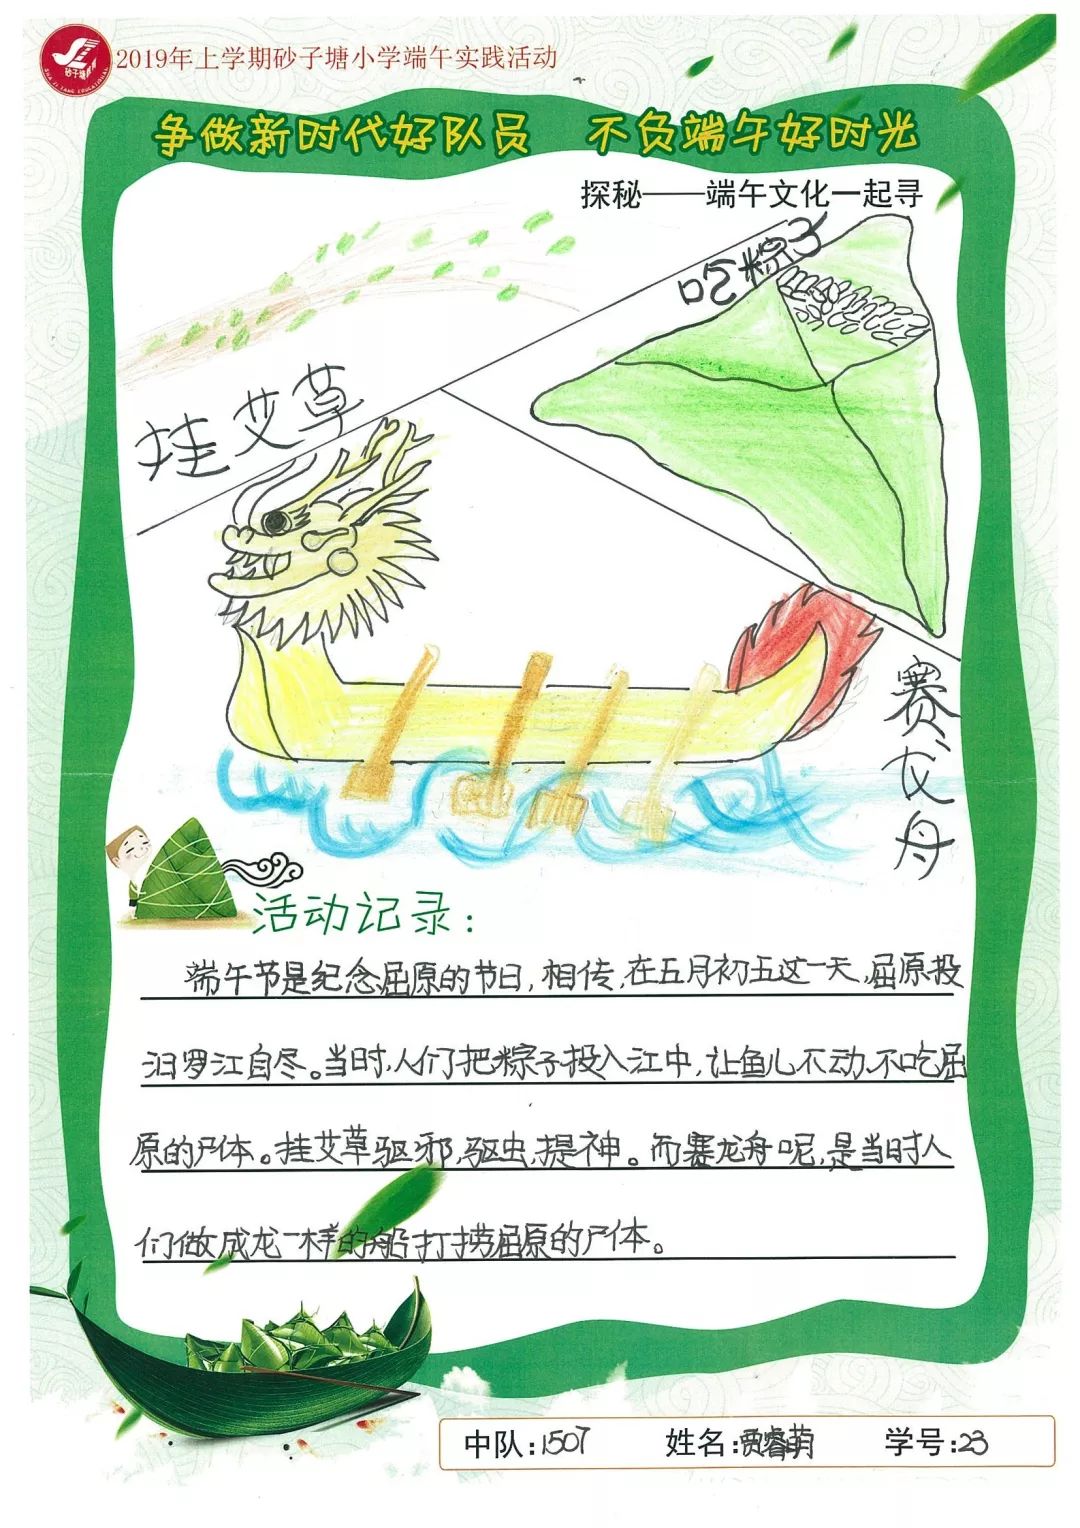 2019年上学期砂子塘小学端午实践活动
争做新时代好队员 不负端午好时光
探秘——端午文化一起寻
吃粽子
挂艾草
赛龙舟
活动记录:
端午节是纪念屈原的节日,相传,在五月初五这一天,屈原投
汨罗江自尽。当时,人们把粽子投入江中,让鱼儿不动,不吃屈
原的尸体。挂艾草驱邪,驱虫,提神。而赛龙舟呢,是当时人
们做成龙一样的船打捞屈原的尸体。
中队:1507 姓名:贾睿萌 学号:23